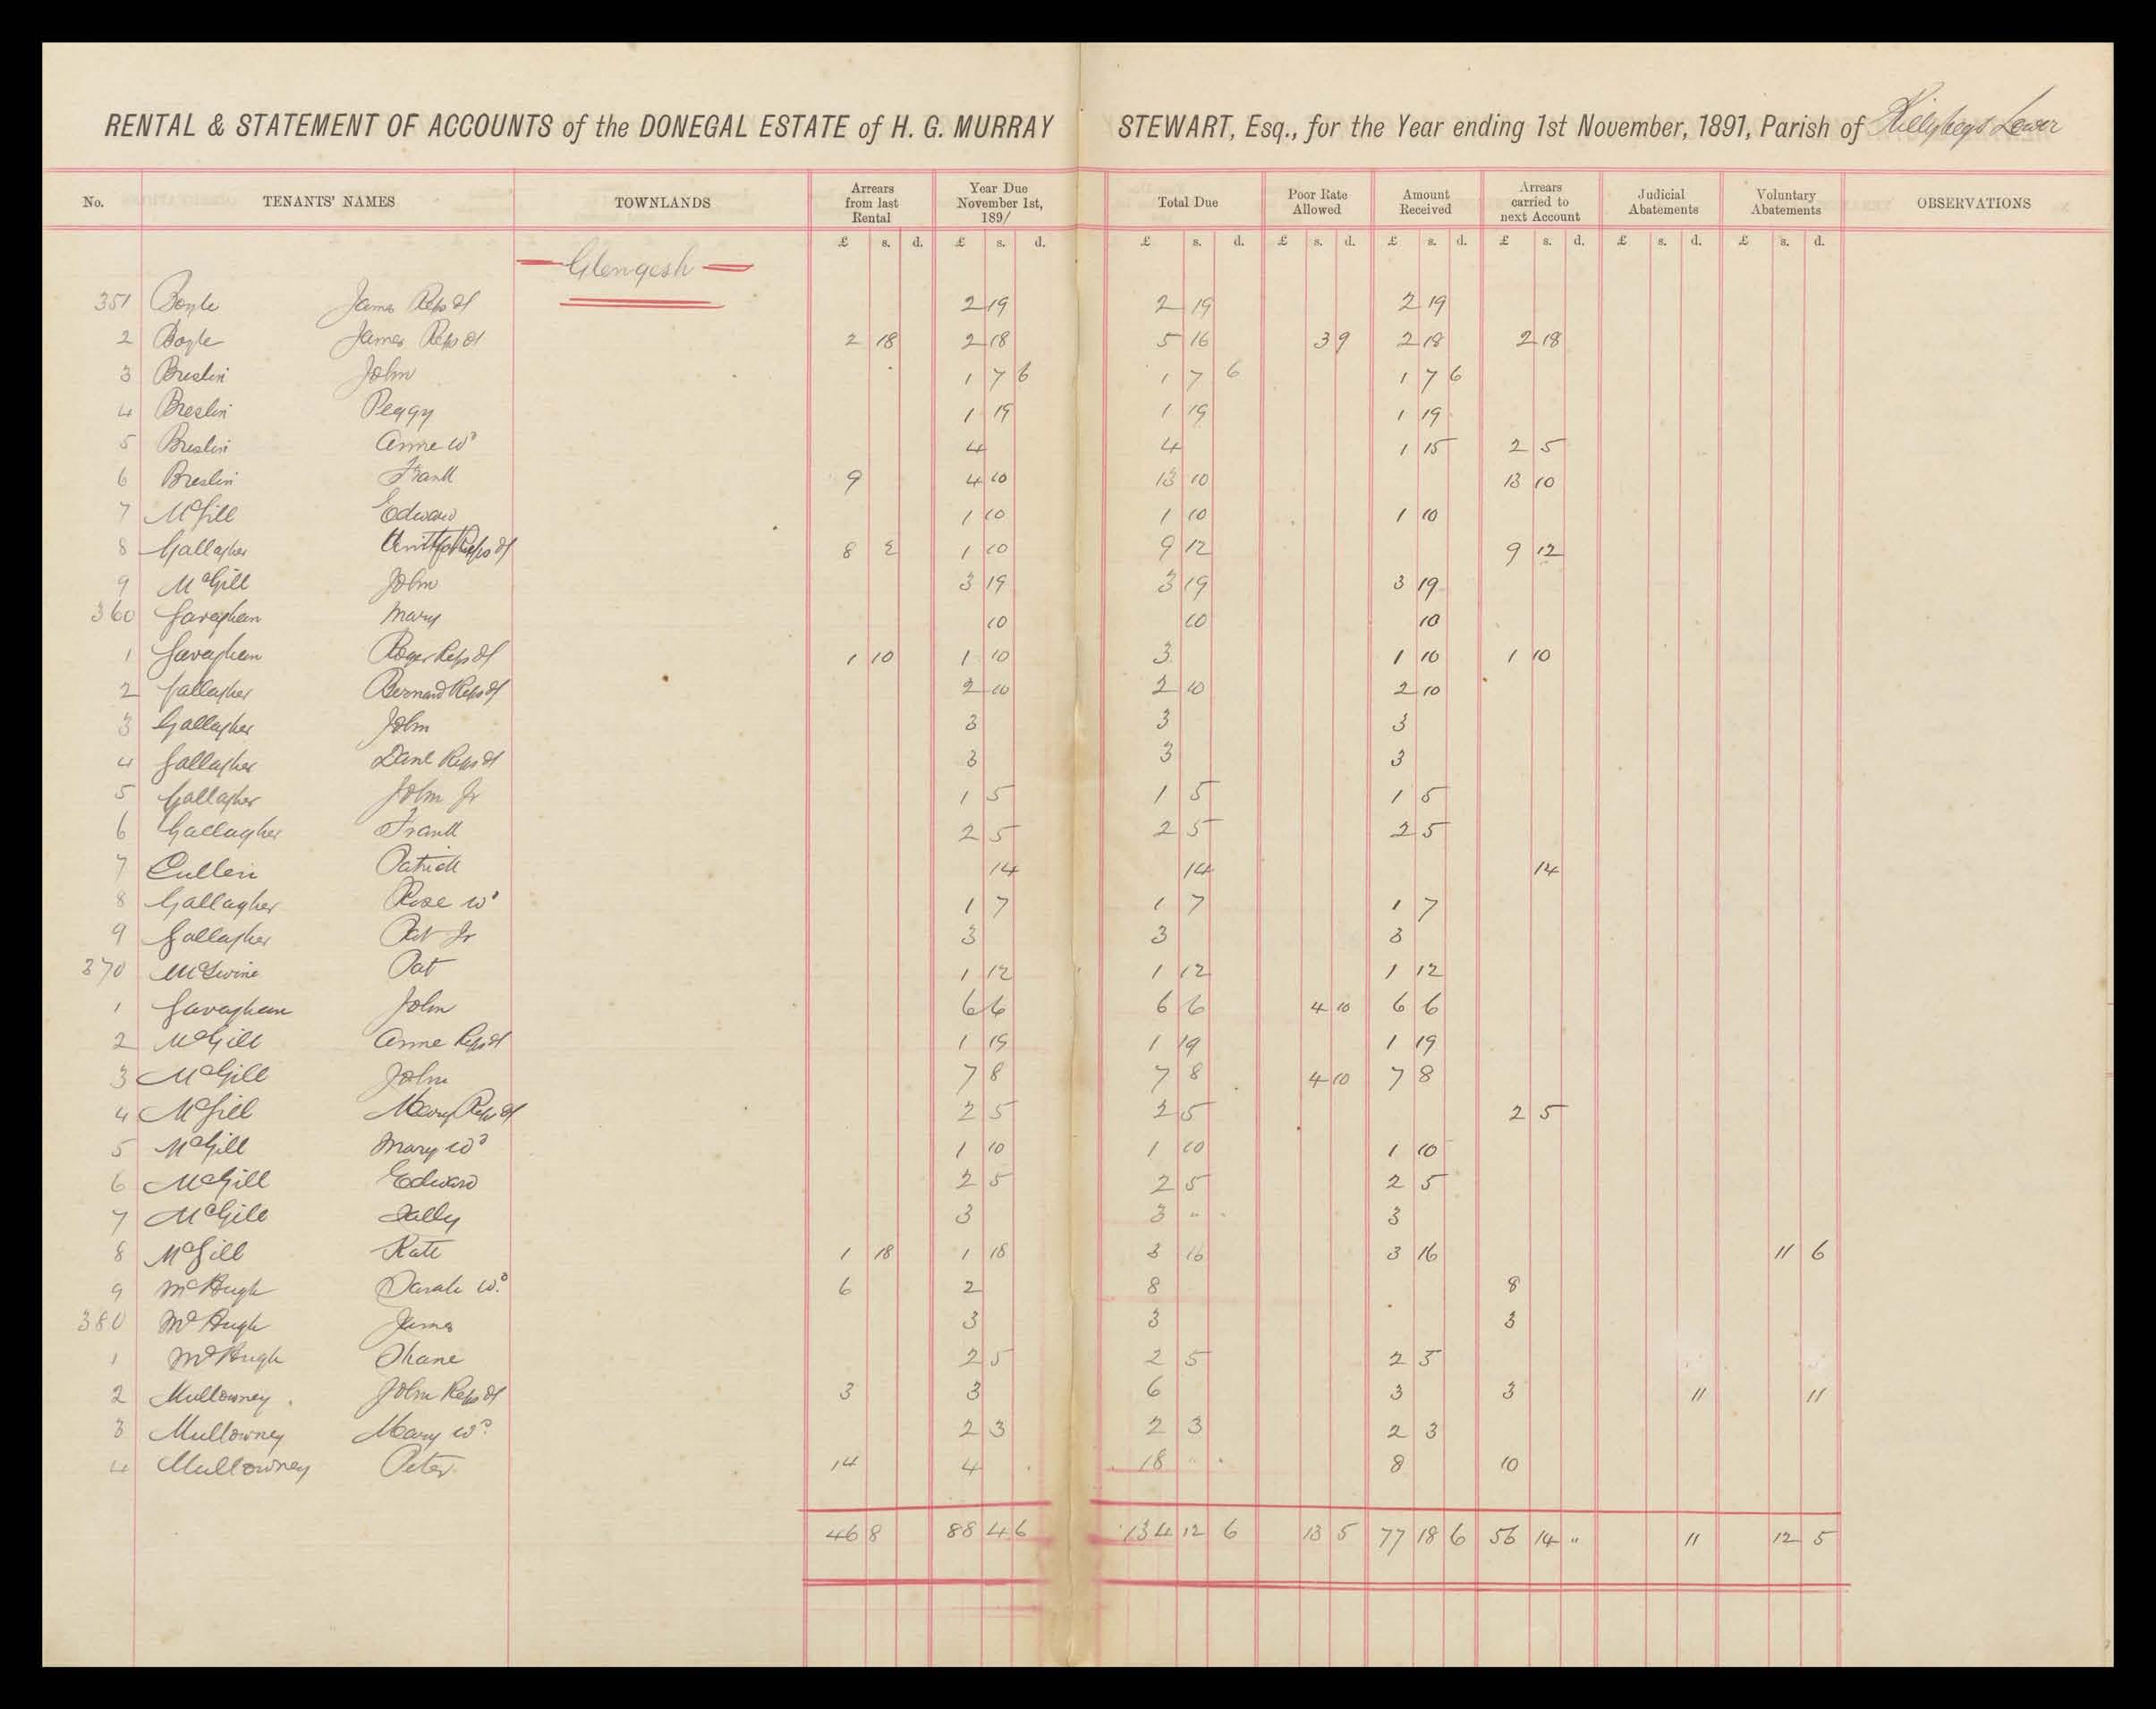 RENTAL & STATEMENT OF ACCOUNTS of the DONEGAL ESTATE of H. G. MURRAY STEWART, Esq., for the Year ending 1st November, 1891, Parish of Killybegs Lower
No. TENANTS' NAMES TOWNLANDS Arrears from last Rental Year Due November 1st, 1891 Total Due Poor Rate Allowed Amount Received Arrears carried to next Account Judicial Abatements Voluntary Abatements OBSERVATIONS
£ s. d. £ s. d. £ s. d. £ s. d. £ s. d. £ s. d. £ s. d. £ s. d.
Glengesh
351 Boyle James Reps of 2 19 2 19 2 19
2 Boyle James Reps of 2 18 2 18 5 16 3 9 2 18 2 18
3 Breslin John 1 7 6 1 7 6 1 7 6
4 Breslin Peggy 1 19 1 19 1 19
5 Breslin Anne Wd 4 4 1 15 2 5
6 Breslin Frank 9 4 10 13 10 13 10
7 McGill Edward 1 10 1 10 1 10
8 Gallagher Reps of 8 2 1 10 9 12 9 12
9 McGill John 3 19 3 19 3 19
360 Gavaghan Mary 10 10 10
1 Gavaghan Roger Reps of 1 10 1 10 3 1 10 1 10
2 Gallagher Bernard Reps of 2 10 2 10 2 10
3 Gallagher John 3 3 3
4 Gallagher Danl Reps of 3 3 3
5 Gallagher John Jr 1 5 1 5 1 5
6 Gallagher Frank 2 5 2 5 2 5
7 Cullen Patrick 14 14 14
8 Gallagher Rose Wd 1 7 1 7 1 7
9 Gallagher Pat Jr 3 3 3
370 McSwine Pat 1 12 1 12 1 12
1 Gavaghan John 6 6 6 6 4 10 6 6
2 McGill Anne Reps of 1 19 1 19 1 19
3 McGill John 7 8 7 8 4 10 7 8
4 McGill Mary Reps of 2 5 2 5 2 5
5 McGill Mary Wd 1 10 1 10 1 10
6 McGill Edward 2 5 2 5 2 5
7 McGill Sally 3 3 " " 3
8 McGill Kate 1 18 1 18 3 16 3 16 11 6
9 McHugh Sarah Wd 6 2 8 8
380 McHugh James 3 3 3
1 McHugh Shane 2 5 2 5 2 5
2 Mullowney John Reps of 3 3 6 3 3 11 11
3 Mullowney Mary Wd 2 3 2 3 2 3
4 Mullowney Peter 14 4 18 " " 8 10
46 8 88 4 6 134 12 6 13 5 77 18 6 56 14 " 11 12 5